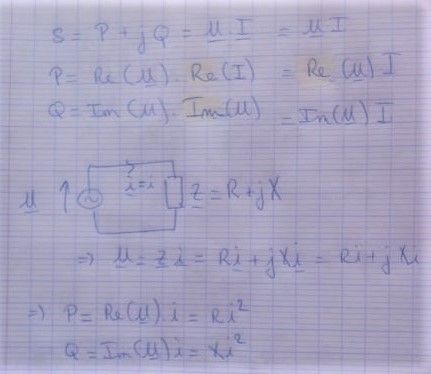 S = P + jQ = u . I = u I
P = Re(u) . Re(I) = Re(u) I
Q = Im(u) . Im(u) = Im(u) I
u i = i z = R + jX
⇒ u = z i = Ri + jXi = Ri + jXi
⇒ P = Re(u) i = Ri²
Q = Im(u) i = Xi²